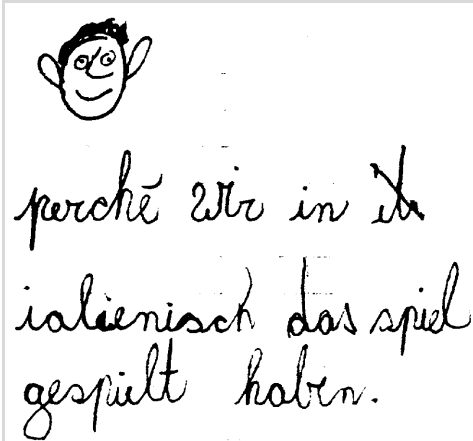 perché wir in
ialienisch das spiel
gespielt haben.